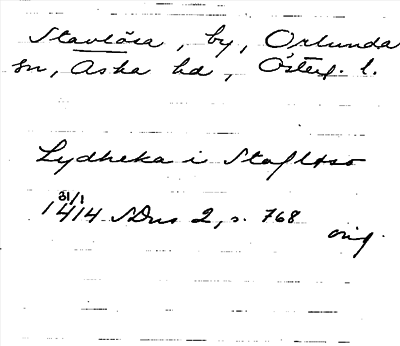 Stavlösa, by, Örlunda
sn, Aska hd, Österg. l.
Lydheka i Stafløso
31/1
1414 SDns 2, s. 768
orig.